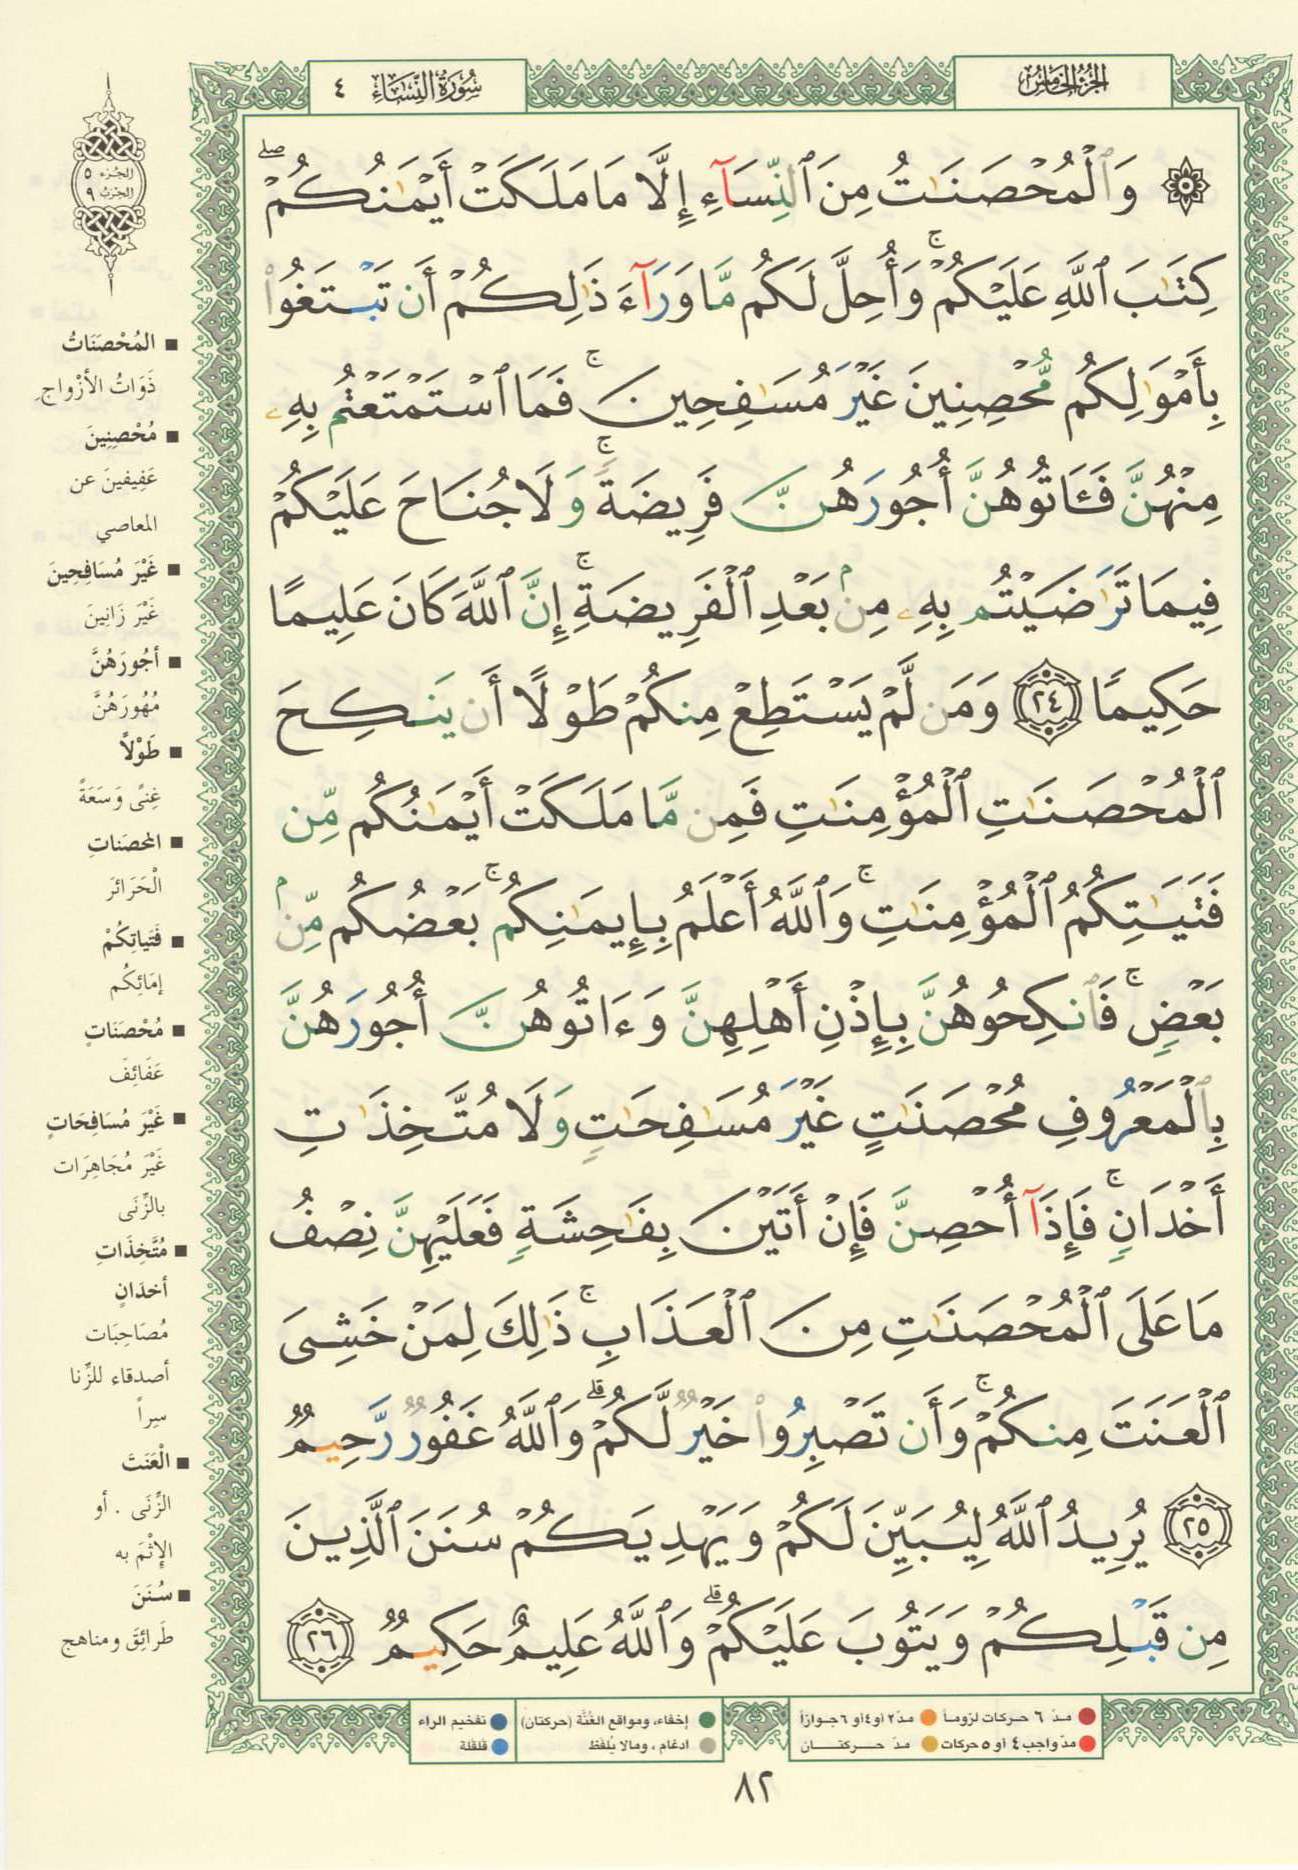 الجزء الخامس
سورة النساء ٤
۞ وَٱلْمُحْصَنَٰتُ مِنَ ٱلنِّسَآءِ إِلَّا مَا مَلَكَتْ أَيْمَٰنُكُمْ ۖ
كِتَٰبَ ٱللَّهِ عَلَيْكُمْ ۚ وَأُحِلَّ لَكُم مَّا وَرَآءَ ذَٰلِكُمْ أَن تَبْتَغُوا۟
بِأَمْوَٰلِكُم مُّحْصِنِينَ غَيْرَ مُسَٰفِحِينَ ۚ فَمَا ٱسْتَمْتَعْتُم بِهِۦ
مِنْهُنَّ فَـَٔاتُوهُنَّ أُجُورَهُنَّ فَرِيضَةً ۚ وَلَا جُنَاحَ عَلَيْكُمْ
فِيمَا تَرَٰضَيْتُم بِهِۦ مِنۢ بَعْدِ ٱلْفَرِيضَةِ ۚ إِنَّ ٱللَّهَ كَانَ عَلِيمًا
حَكِيمًا ٢٤ وَمَن لَّمْ يَسْتَطِعْ مِنكُمْ طَوْلًا أَن يَنكِحَ
ٱلْمُحْصَنَٰتِ ٱلْمُؤْمِنَٰتِ فَمِن مَّا مَلَكَتْ أَيْمَٰنُكُم مِّن
فَتَيَٰتِكُمُ ٱلْمُؤْمِنَٰتِ ۚ وَٱللَّهُ أَعْلَمُ بِإِيمَٰنِكُم ۚ بَعْضُكُم مِّنۢ
بَعْضٍ ۚ فَٱنكِحُوهُنَّ بِإِذْنِ أَهْلِهِنَّ وَءَاتُوهُنَّ أُجُورَهُنَّ
بِٱلْمَعْرُوفِ مُحْصَنَٰتٍ غَيْرَ مُسَٰفِحَٰتٍ وَلَا مُتَّخِذَٰتِ
أَخْدَانٍ ۚ فَإِذَآ أُحْصِنَّ فَإِنْ أَتَيْنَ بِفَٰحِشَةٍ فَعَلَيْهِنَّ نِصْفُ
مَا عَلَى ٱلْمُحْصَنَٰتِ مِنَ ٱلْعَذَابِ ۚ ذَٰلِكَ لِمَنْ خَشِىَ
ٱلْعَنَتَ مِنكُمْ ۚ وَأَن تَصْبِرُوا۟ خَيْرٌ لَّكُمْ ۗ وَٱللَّهُ غَفُورٌ رَّحِيمٌ
٢٥ يُرِيدُ ٱللَّهُ لِيُبَيِّنَ لَكُمْ وَيَهْدِيَكُمْ سُنَنَ ٱلَّذِينَ
مِن قَبْلِكُمْ وَيَتُوبَ عَلَيْكُمْ ۗ وَٱللَّهُ عَلِيمٌ حَكِيمٌ ٢٦
الجزء ٥
الحزب ٩
■ المُحْصَنَاتُ
ذَوَاتُ الأزْواجِ
■ مُحْصِنِينَ
عَفِيفِينَ عن
المعاصي
■ غَيْرَ مُسَافِحِينَ
غَيْرَ زَانِينَ
■ أُجُورَهُنَّ
مُهُورَهُنَّ
■ طَوْلاً
غِنًى وَسَعَةً
■ المحصَناتِ
الْحَرَائرَ
■ فَتَياتِكُمْ
إمَائِكُم
■ مُحْصَنَاتٍ
عَفَائِفَ
■ غَيْرَ مُسَافِحَاتٍ
غَيْرَ مُجَاهِرَات
بالزِّنَى
■ مُتَّخِذَاتِ
أخدَانٍ
مُصَاحِبَات
أصدقاء للزِّنا
سِراً
■ الْعَنَتَ
الزِّنَى . أو
الإِثْمَ به
■ سُنَنَ
طَرائِقَ ومناهج
مدّ ٦ حركات لزوماً
مدّ ٢ أو ٤ أو ٦ جوازاً
إخفاء، ومواقع الغُنَّة (حركتان)
تفخيم الراء
مدّ واجب ٤ أو ٥ حركات
مدّ حركتان
ادغام ، ومالا يُلفظ
قلقلة
٨٢